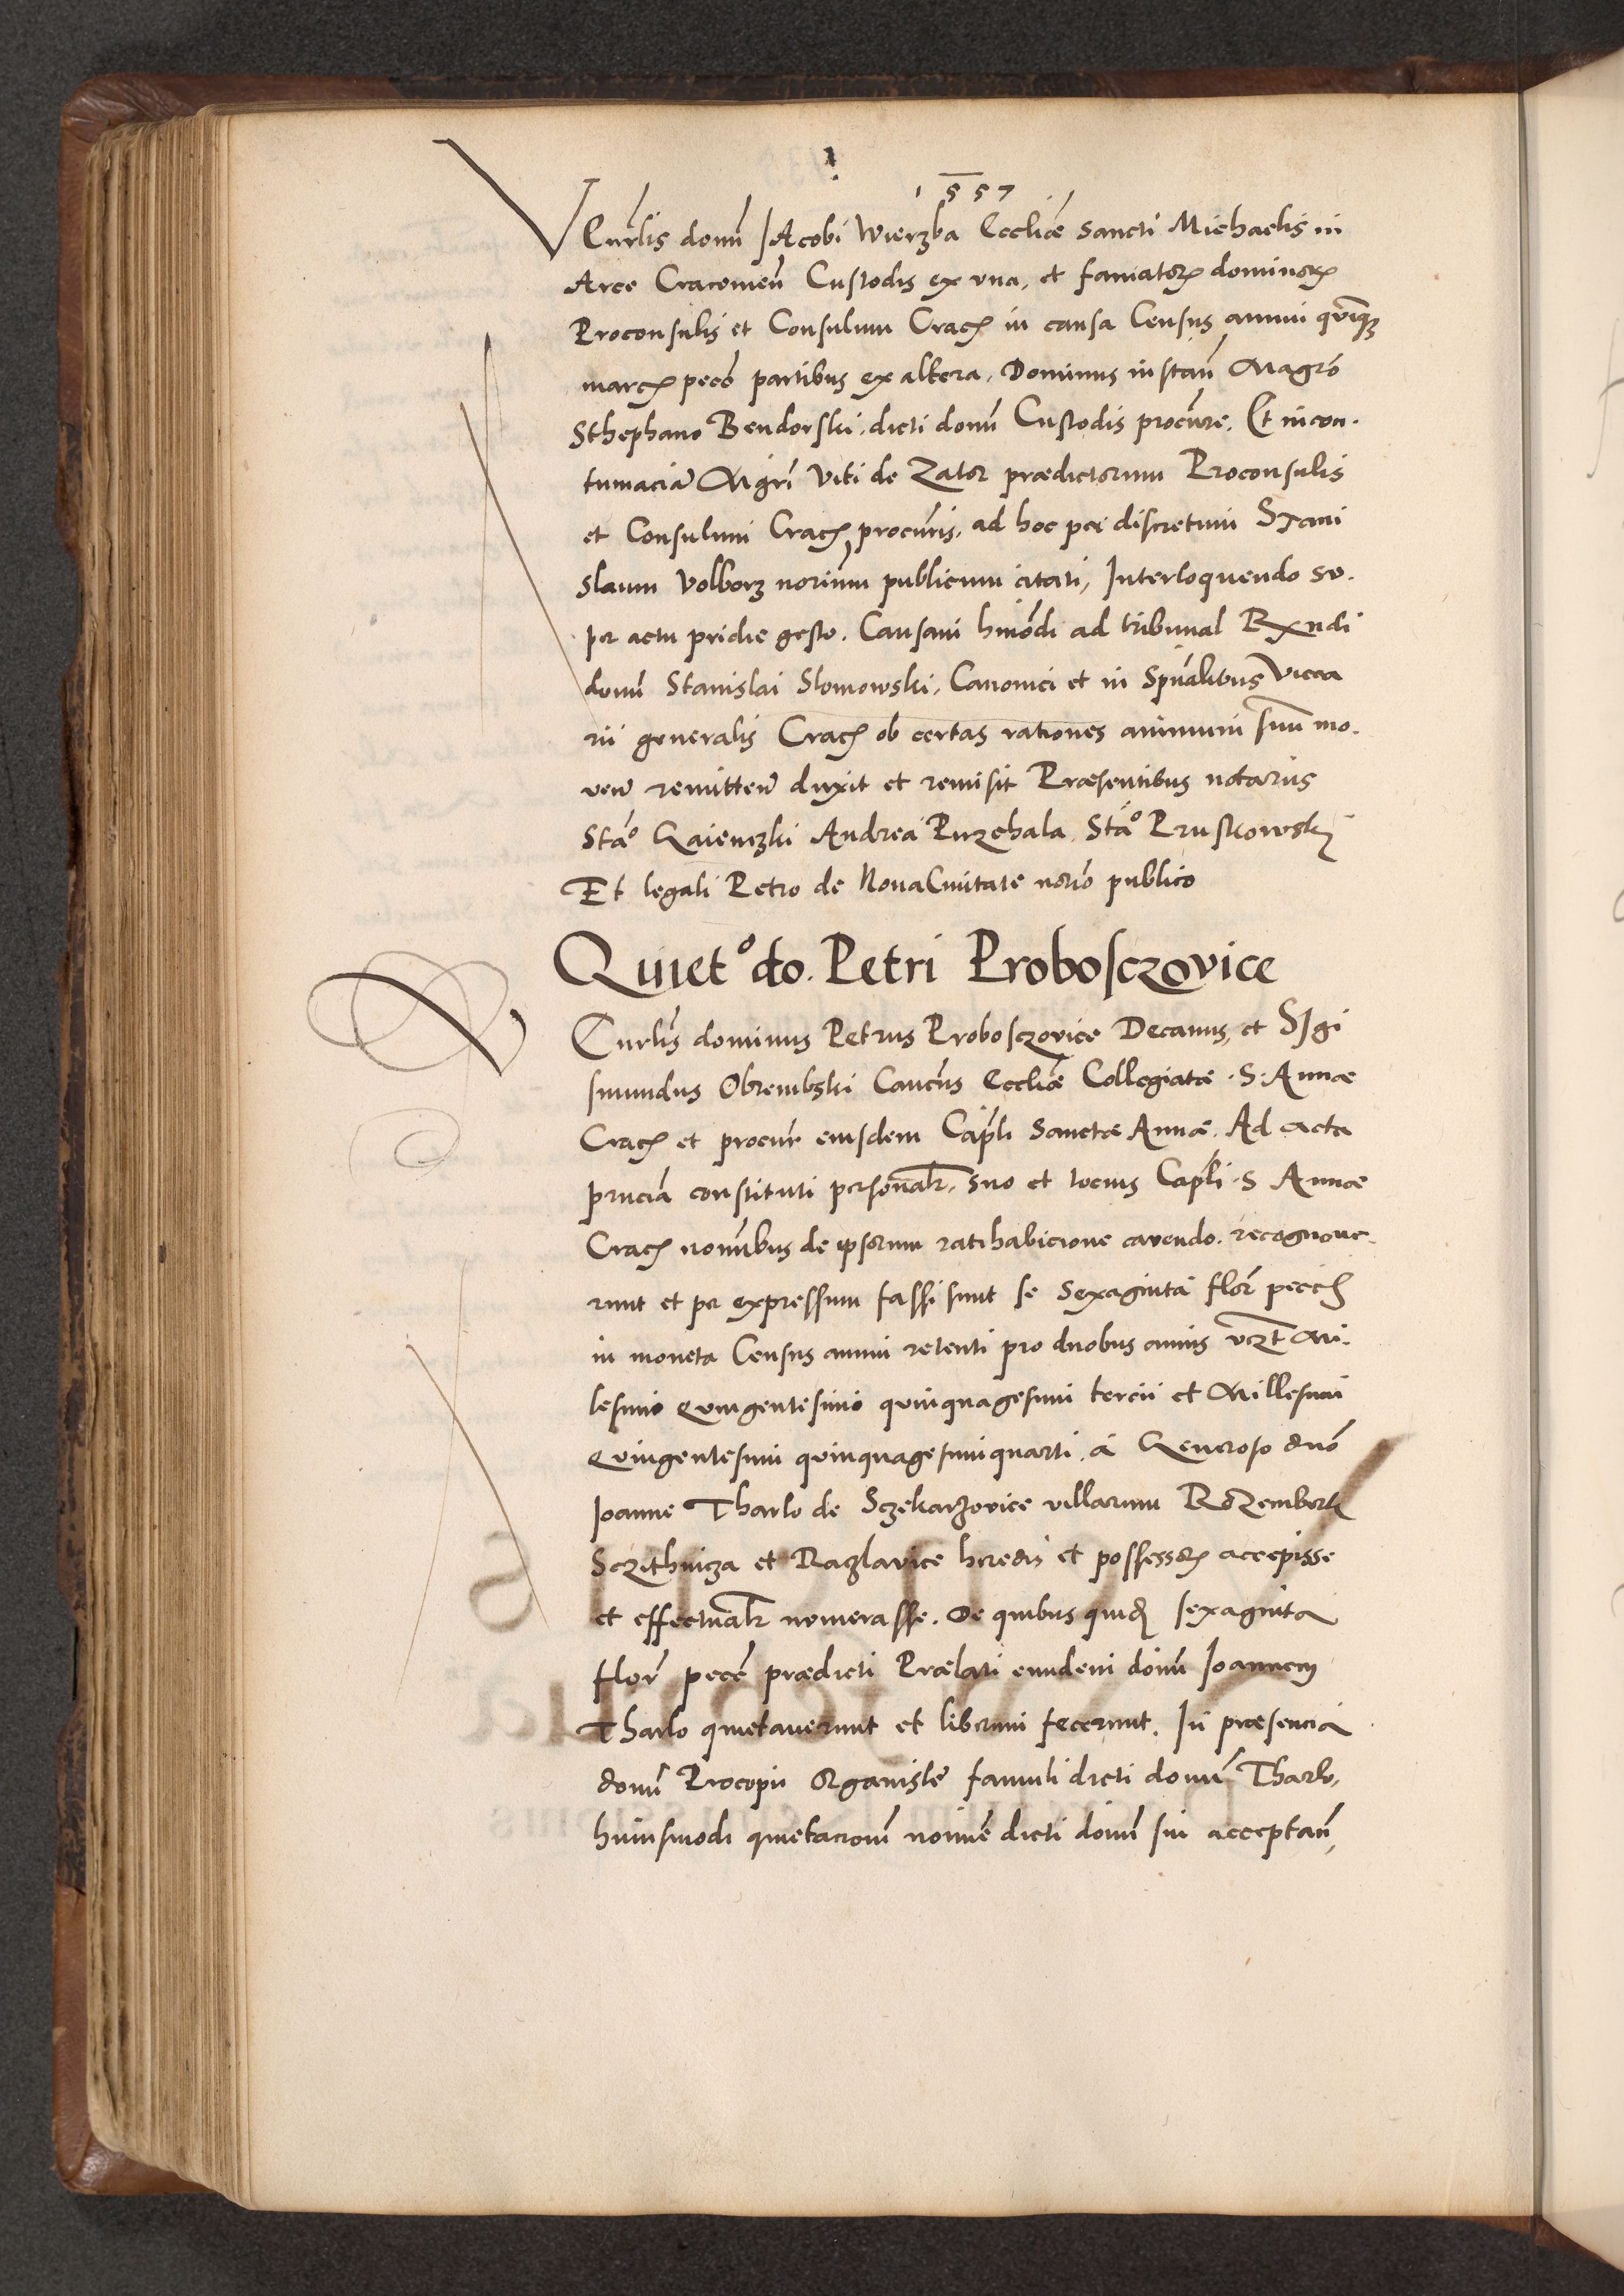 1557
VEnerlis domi JAcobi Wierzba Eccliae sancti Michaelis in
Arce Cracoviem Custodis ex vna, et famatorꝝ dominorꝝ
Proconsulis et Consulum Cracꝝ in causa Census annui quinqꝫ
marcꝝ pecc partibus ex altera, Dominus in stan Magro
Sthephano Bendorski, dicti domi Custodis procure, Et in con-
tumacia Mgri Viti de Zator praedictorum Proconsulis
et Consulum Cracꝝ procuris, ad hoc per discretum STani
slaum Volborz norium publicum citati, Interloquendo su-
per actu pridie gesto, Causam hmodi ad tribunal Rxndi
domi Stanislai Slomowski, Canonici et in Spualibus Vica
rii generalis Cracꝝ ob certas rationes animum suum mo-
ven remitten duxit et remisit Praesentibus notariis
Stao Gaienczki Andrea Przechala, Stao Pruskowskj
Et legali Petro de Noua Ciuitate norio publico
Quieto do. Petri Probosczovice
VEnerlis dominus Petrus Proboszovice Decanus, et SIgi
smundus Obrembski Cancus Eccliae Collegiatae .S. Annae
Cracꝝ et procur eiusdem Capli Sanctae Annae. Ad acta
pruciā constituti personalr, suo et tocius Capli .S Annae
Cracꝝ nomibus de ipsorum ratihabicione cavendo, recognoue-
runt et per expressum fassi sunt se Sexaginta flor pecc
in moneta Census annui retenti pro duobus annis vczt Mi-
lesimo Quingentesimo quinquagesimi tercii et Millesimi
Quingentesimi quinquagesimi quarti, a Generoso duo
Joanne Tharlo de Sczekarzovice villarum ROZembork
Sczithnicza et Razlavice heredis et possessorꝝ accepisse
et effectualr numerasse. De quibus quidꝫ sexaginta
flor pecc praedicti Praelati eundem domi Joannem
Tharlo quietauerunt et liberum fecerunt. In praesencia
domi Procopii Organiste famuli dicti domi Tharlo,
huiusmodi quietacionem nomine dicti domi sui acceptan,